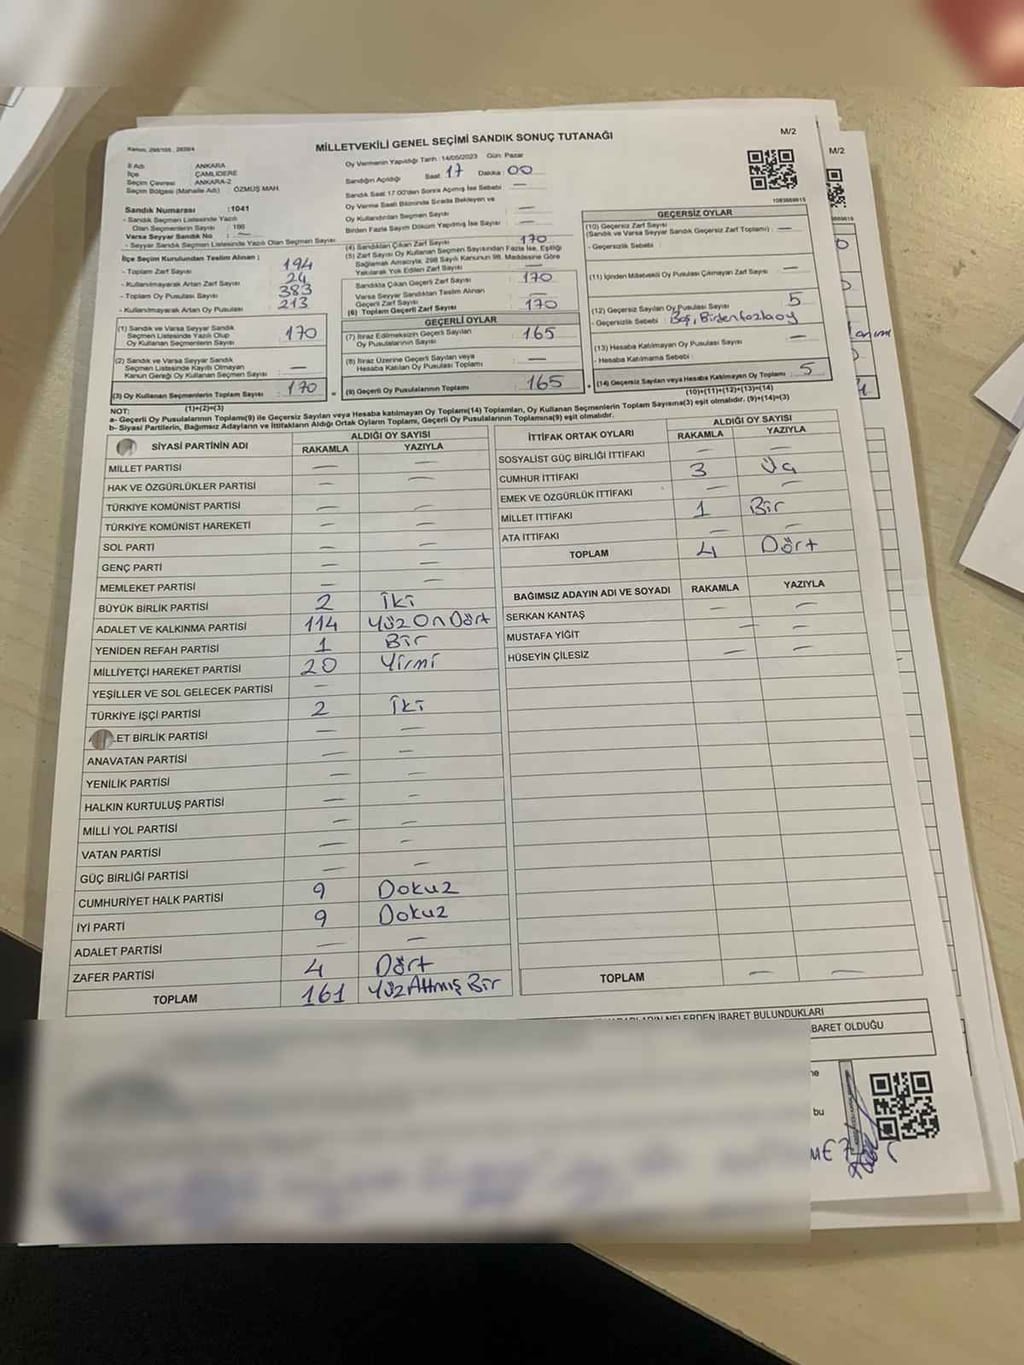 Kanun, 298/105, 2839/4
MİLLETVEKİLİ GENEL SEÇİMİ SANDIK SONUÇ TUTANAĞI
M/2
M/2
İl Adı ANKARA
İlçe ÇAMLIDERE
Seçim Çevresi ANKARA-2
Seçim Bölgesi (Mahalle Adı) ÖZMÜŞ MAH.
Sandık Numarası :1041
- Sandık Seçmen Listesinde Yazılı
Olan Seçmenlerin Sayısı : 186
Varsa Seyyar Sandık No : —
- Seyyar Sandık Seçmen Listesinde Yazılı Olan Seçmen Sayısı
İlçe Seçim Kurulundan Teslim Alınan ;
- Toplam Zarf Sayısı 194
- Kullanılmayarak Artan Zarf Sayısı 24
- Toplam Oy Pusulası Sayısı 383
- Kullanılmayarak Artan Oy Pusulası 213
(1) Sandık ve Varsa Seyyar Sandık
Seçmen Listesinde Yazılı Olup
Oy Kullanan Seçmenlerin Sayısı 170
(2) Sandık ve Varsa Seyyar Sandık
Seçmen Listesinde Kayıtlı Olmayan
Kanun Gereği Oy Kullanan Seçmen Sayısı —
(3) Oy Kullanan Seçmenlerin Toplam Sayısı 170
(1)+(2)=(3)
Oy Vermenin Yapıldığı Tarih :14/05/2023 Gün: Pazar
Sandığın Açıldığı Saat 17 Dakika : 00
Sandık Saat 17:00'den Sonra Açılmış İse Sebebi —
Oy Verme Saati Bitiminde Sırada Bekleyen ve
Oy Kullandırılan Seçmen Sayısı —
Birden Fazla Sayım Dökümü Yapılmış İse Sayısı —
(4) Sandıktan Çıkan Zarf Sayısı 170
(5) Zarf Sayısı Oy Kullanan Seçmen Sayısından Fazla İse, Eşitliği
Sağlamak Amacıyla, 298 Sayılı Kanunun 98. Maddesine Göre
Yakılarak Yok Edilen Zarf Sayısı —
Sandıkta Çıkan Geçerli Zarf Sayısı 170
Varsa Seyyar Sandıktan Teslim Alınan
Geçerli Zarf Sayısı —
(6) Toplam Geçerli Zarf Sayısı 170
GEÇERLİ OYLAR
(7) İtiraz Edilmeksizin Geçerli Sayılan
Oy Pusulalarının Sayısı 165
(8) İtiraz Üzerine Geçerli Sayılan veya
Hesaba Katılan Oy Pusulası Toplamı —
(9) Geçerli Oy Pusulalarının Toplamı 165
1083669615
GEÇERSİZ OYLAR
(10) Geçersiz Zarf Sayısı
(Sandık ve Varsa Seyyar Sandık Geçersiz Zarf Toplamı) : —
- Geçersizlik Sebebi :
(11) İçinden Milletvekili Oy Pusulası Çıkmayan Zarf Sayısı —
(12) Geçersiz Sayılan Oy Pusulası Sayısı 5
- Geçersizlik Sebebi : Boş, Birden fazla oy
(13) Hesaba Katılmayan Oy Pusulası Sayısı —
- Hesaba Katılmama Sebebi :
(14) Geçersiz Sayılan veya Hesaba Katılmayan Oy Toplamı : 5
(10)+(11)+(12)+(13)=(14)
NOT:
a- Geçerli Oy Pusulalarının Toplamı(9) ile Geçersiz Sayılan veya Hesaba katılmayan Oy Toplamı(14) Toplamları, Oy Kullanan Seçmenlerin Toplam Sayısına(3) eşit olmalıdır. (9)+(14)=(3)
b- Siyasi Partilerin, Bağımsız Adayların ve İttifakların Aldığı Ortak Oyların Toplamı, Geçerli Oy Pusulalarının Toplamına(9) eşit olmalıdır.
SİYASİ PARTİNİN ADI ALDIĞI OY SAYISI
RAKAMLA YAZIYLA
MİLLET PARTİSİ — —
HAK VE ÖZGÜRLÜKLER PARTİSİ — —
TÜRKİYE KOMÜNİST PARTİSİ — —
TÜRKİYE KOMÜNİST HAREKETİ — —
SOL PARTİ — —
GENÇ PARTİ — —
MEMLEKET PARTİSİ — —
BÜYÜK BİRLİK PARTİSİ 2 İki
ADALET VE KALKINMA PARTİSİ 114 Yüz On Dört
YENİDEN REFAH PARTİSİ 1 Bir
MİLLİYETÇİ HAREKET PARTİSİ 20 Yirmi
YEŞİLLER VE SOL GELECEK PARTİSİ —
TÜRKİYE İŞÇİ PARTİSİ 2 İki
ET BİRLİK PARTİSİ — —
ANAVATAN PARTİSİ — —
YENİLİK PARTİSİ — —
HALKIN KURTULUŞ PARTİSİ — —
MİLLİ YOL PARTİSİ — —
VATAN PARTİSİ — —
GÜÇ BİRLİĞİ PARTİSİ — —
CUMHURİYET HALK PARTİSİ 9 Dokuz
İYİ PARTİ 9 Dokuz
ADALET PARTİSİ — —
ZAFER PARTİSİ 4 Dört
TOPLAM 161 Yüz Altmış Bir
İTTİFAK ORTAK OYLARI ALDIĞI OY SAYISI
RAKAMLA YAZIYLA
SOSYALİST GÜÇ BİRLİĞİ İTTİFAKI — —
CUMHUR İTTİFAKI 3 Üç
EMEK VE ÖZGÜRLÜK İTTİFAKI — —
MİLLET İTTİFAKI 1 Bir
ATA İTTİFAKI — —
TOPLAM 4 Dört
BAĞIMSIZ ADAYIN ADI VE SOYADI RAKAMLA YAZIYLA
SERKAN KANTAŞ — —
MUSTAFA YİĞİT — —
HÜSEYİN ÇİLESİZ — —
TOPLAM — —
NELERDEN İBARET BULUNDUKLARI
BARET OLDUĞU
bu